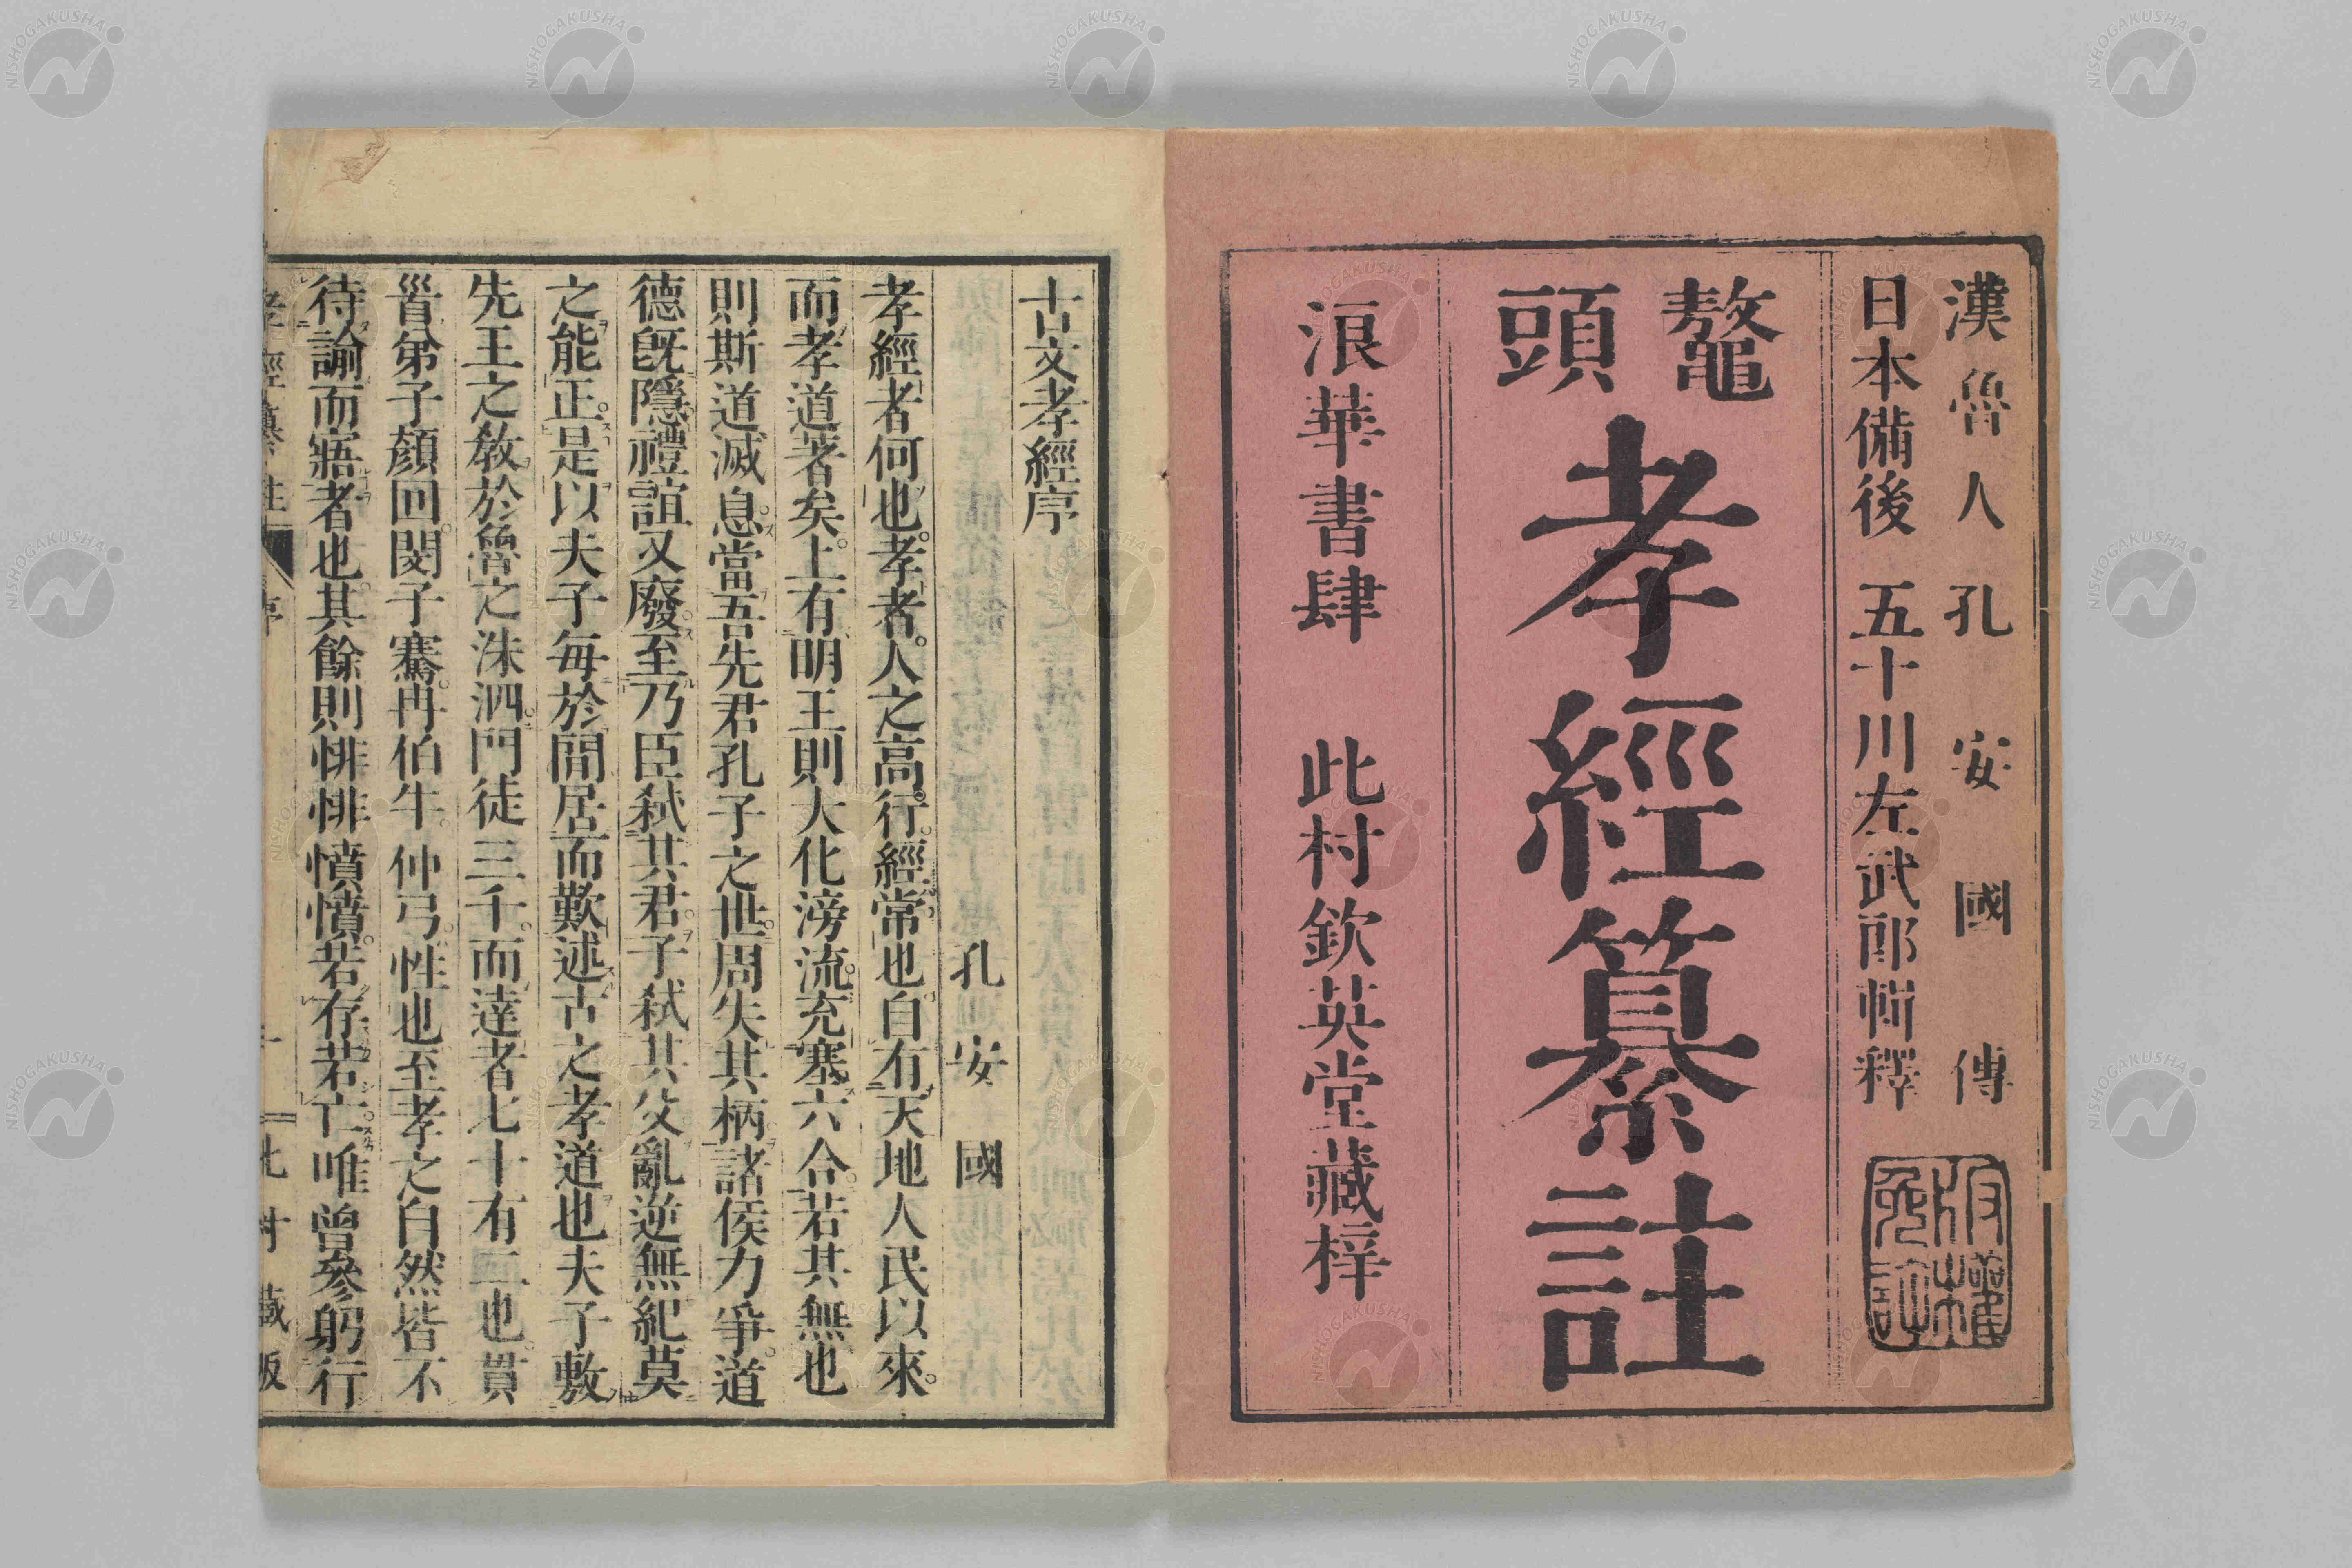 漢魯人孔安國傳
日本備後 五十川左武郎輯釋
版權免許
鼇頭
孝經纂註
浪華書肆 此村欽英堂藏梓
古文孝經序
孔安國
孝經者何也。孝者。人之高行。經常也自有天地人民以來。
而孝道著矣。上有明王則大化滂流充塞六合。若其無也
則斯道滅息。當吾先君孔子之世。周失其柄諸侯力爭。道
德旣隱。禮誼又廢。至乃臣弑其君。子弑其父亂逆無紀莫
之能正。是以夫子每於閒居而歎述古之孝道也夫子敷
先王之敎於魯之洙泗。門徒三千。而達者七十有二也。貫
首弟子顏回。閔子騫。冉伯牛。仲弓。性也至孝之自然皆不
待諭而寤者也。其餘則悱悱憤憤。若存若亡。唯曾參躬行
孝經纂註 序 一 此村藏版
NISHOGAKUSHA